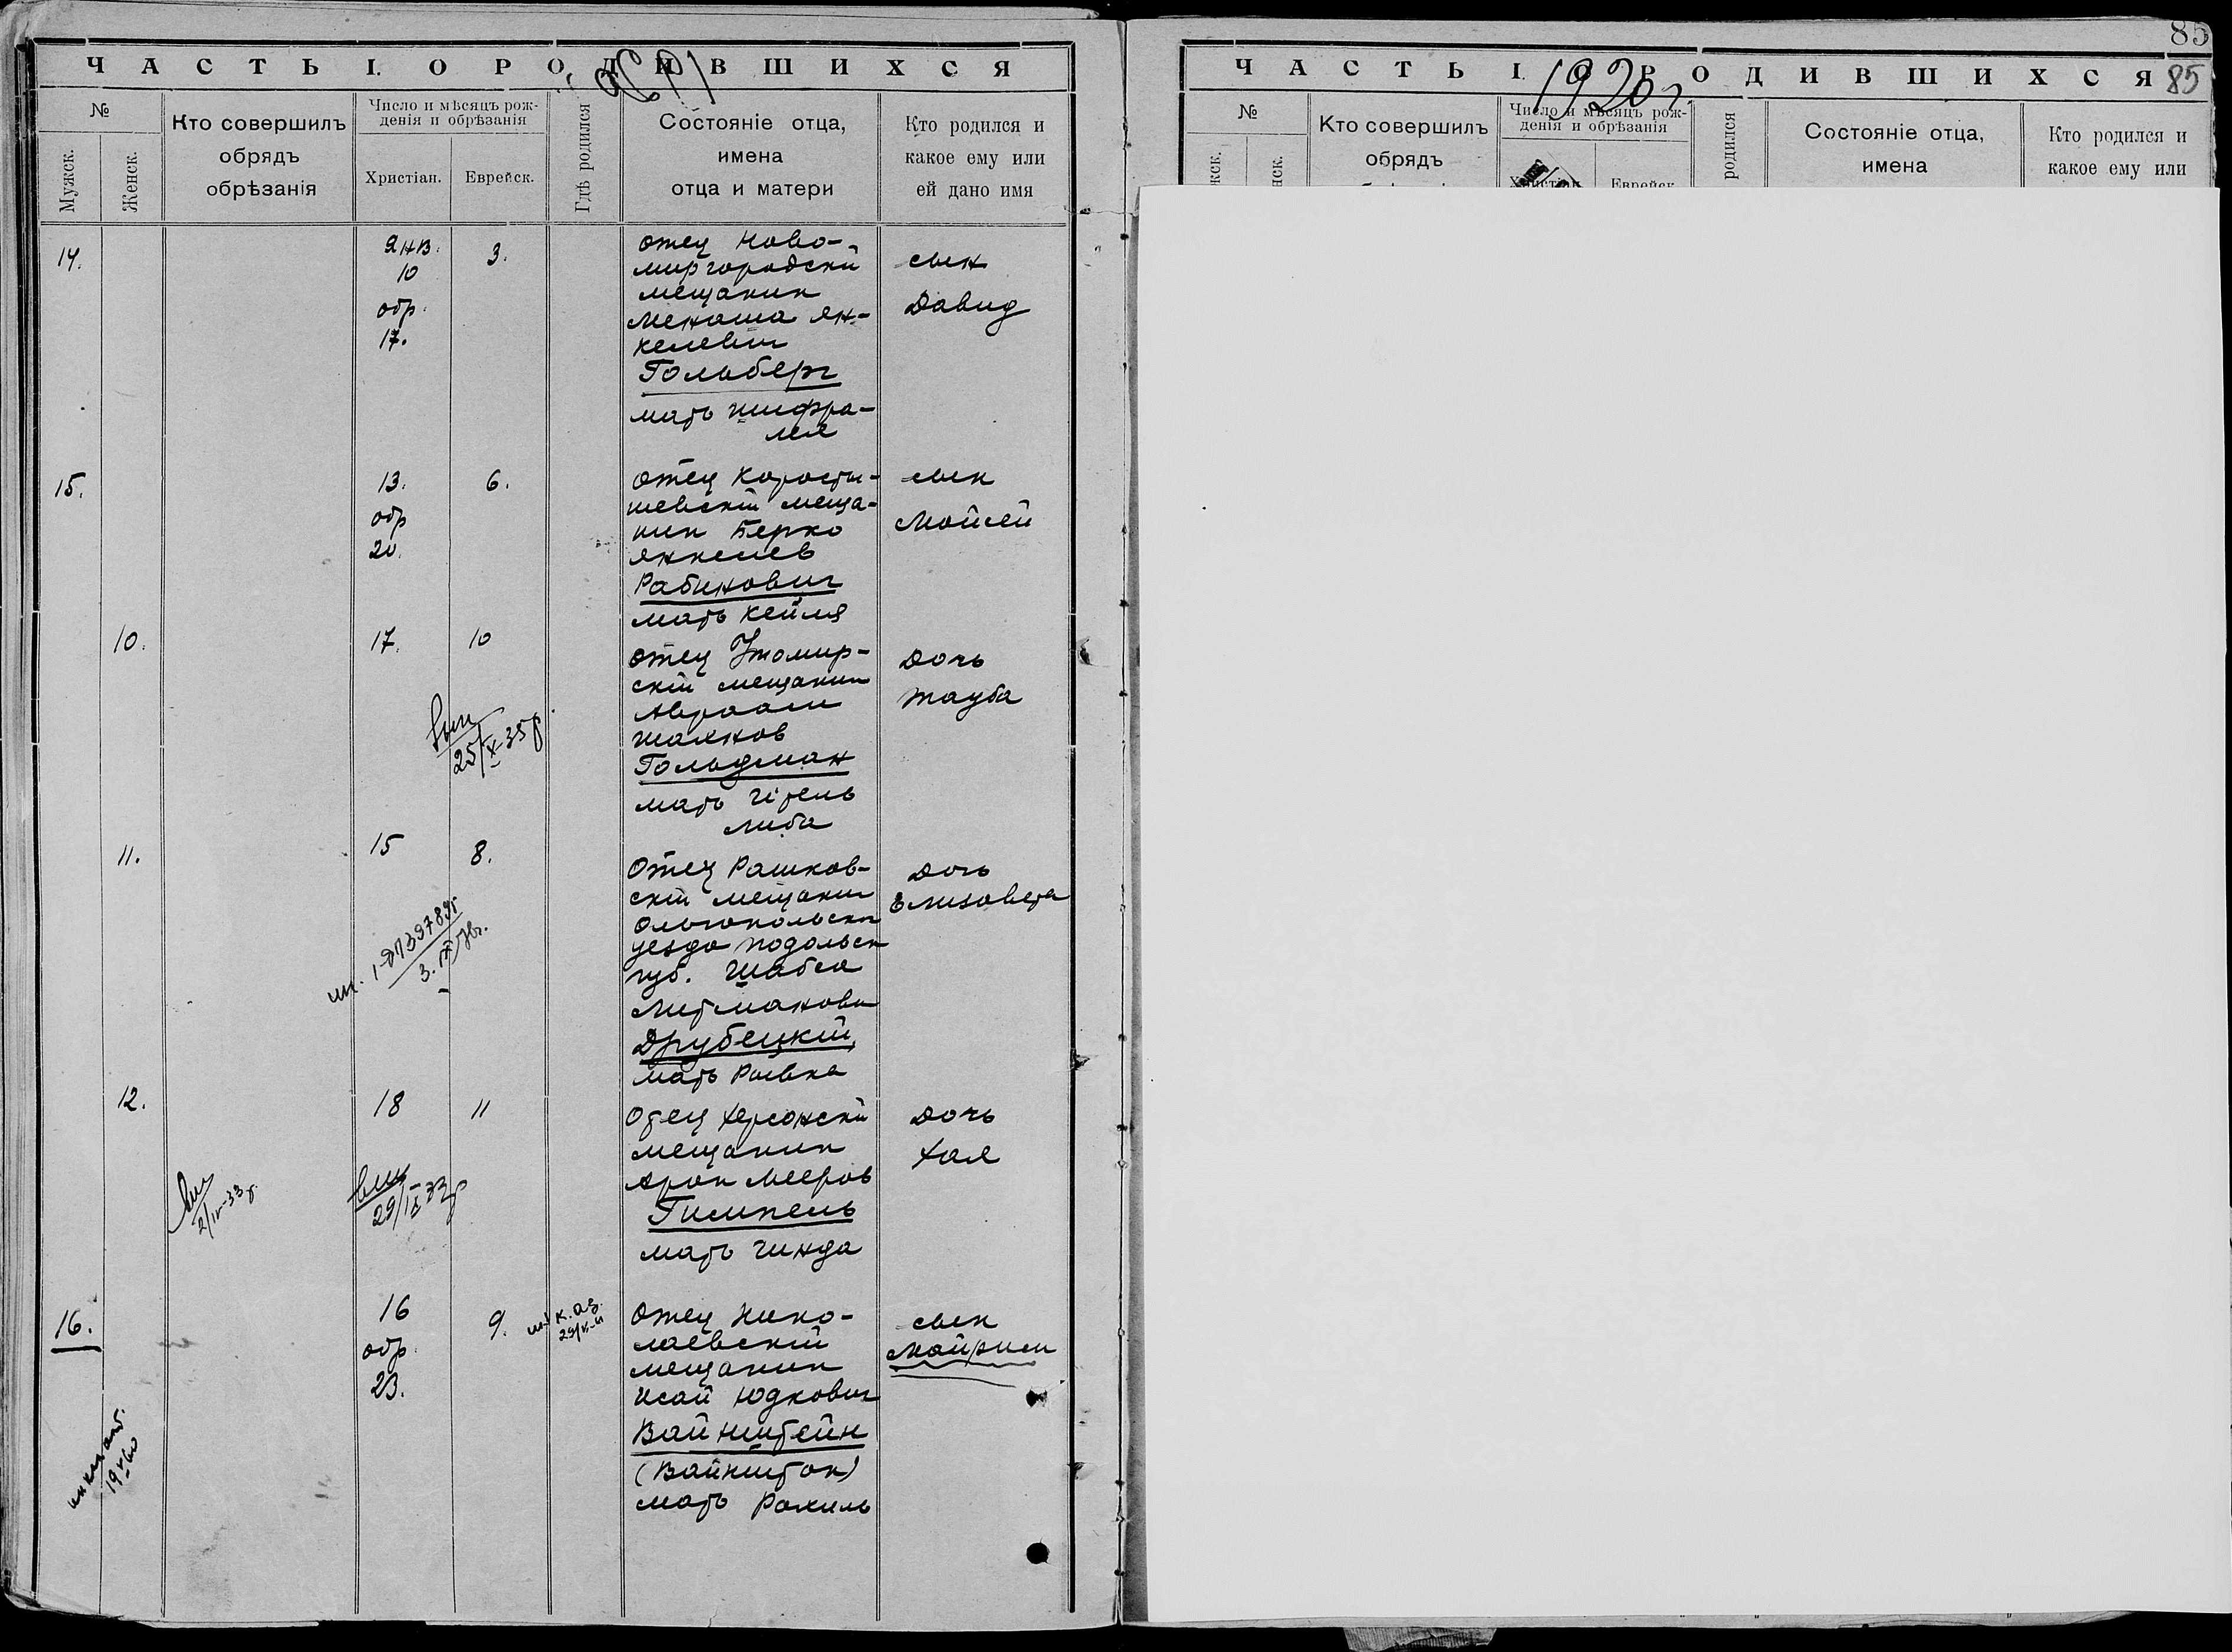 ЧАСТЬ I. О РОДИВШИХСЯ
№
Мужск.
Женск.
Кто совершилъ
обрядъ
обрѣзанія
Число и мѣсяцъ рож-
денія и обрѣзанія
Христіан.
Еврейск.
Гдѣ родился
Состояніе отца,
имена
отца и матери
Кто родился и
какое ему или
ей дано имя
14.
Янв.
10
обр.
17.
3.
отец Ново-
миргородскій
мещанин
Менаша Ян-
келевич
Гольберг
мать Шифра-
лея
сын
Давид
15.
13.
обр
20.
6.
отец Коросты-
шевскій меща-
нин Берко
Янкелев
Рабинович
мать Кейля
сын
Мойсей
10.
17.
10
отец Житомир-
скій мещанин
Авраам
Гольдман
мать Гітель
Либа
дочь
Тауба
25/X-35р.
11.
15
8.
Отец Рашков-
скій мещанин
Ольгопольск
уезда Подольск
губ. Шабса
Литманович
Друбецкій
мать Ривка
дочь
Елизовета
12.
18
11
Отец Херсонскій
мещанин
Арон Мееров
Гимпель
мать Гинда
дочь
Хая
2/IV-33 г.
29/IX 33р
16.
16
обр.
23.
9.
Отец Нико-
лаевскій
мещанин
Исай Юдкович
Вайнштейн
(Вайншток)
мать Рахиль
сын
Майрим
85
ЧАСТЬ I. О РОДИВШИХСЯ
85
1920 г.
№
жск.
нск.
Кто совершилъ
обрядъ
Число и мѣсяцъ рож-
денія и обрѣзанія
Христіан.
Еврейск.
родился
Состояніе отца,
имена
Кто родился и
какое ему или